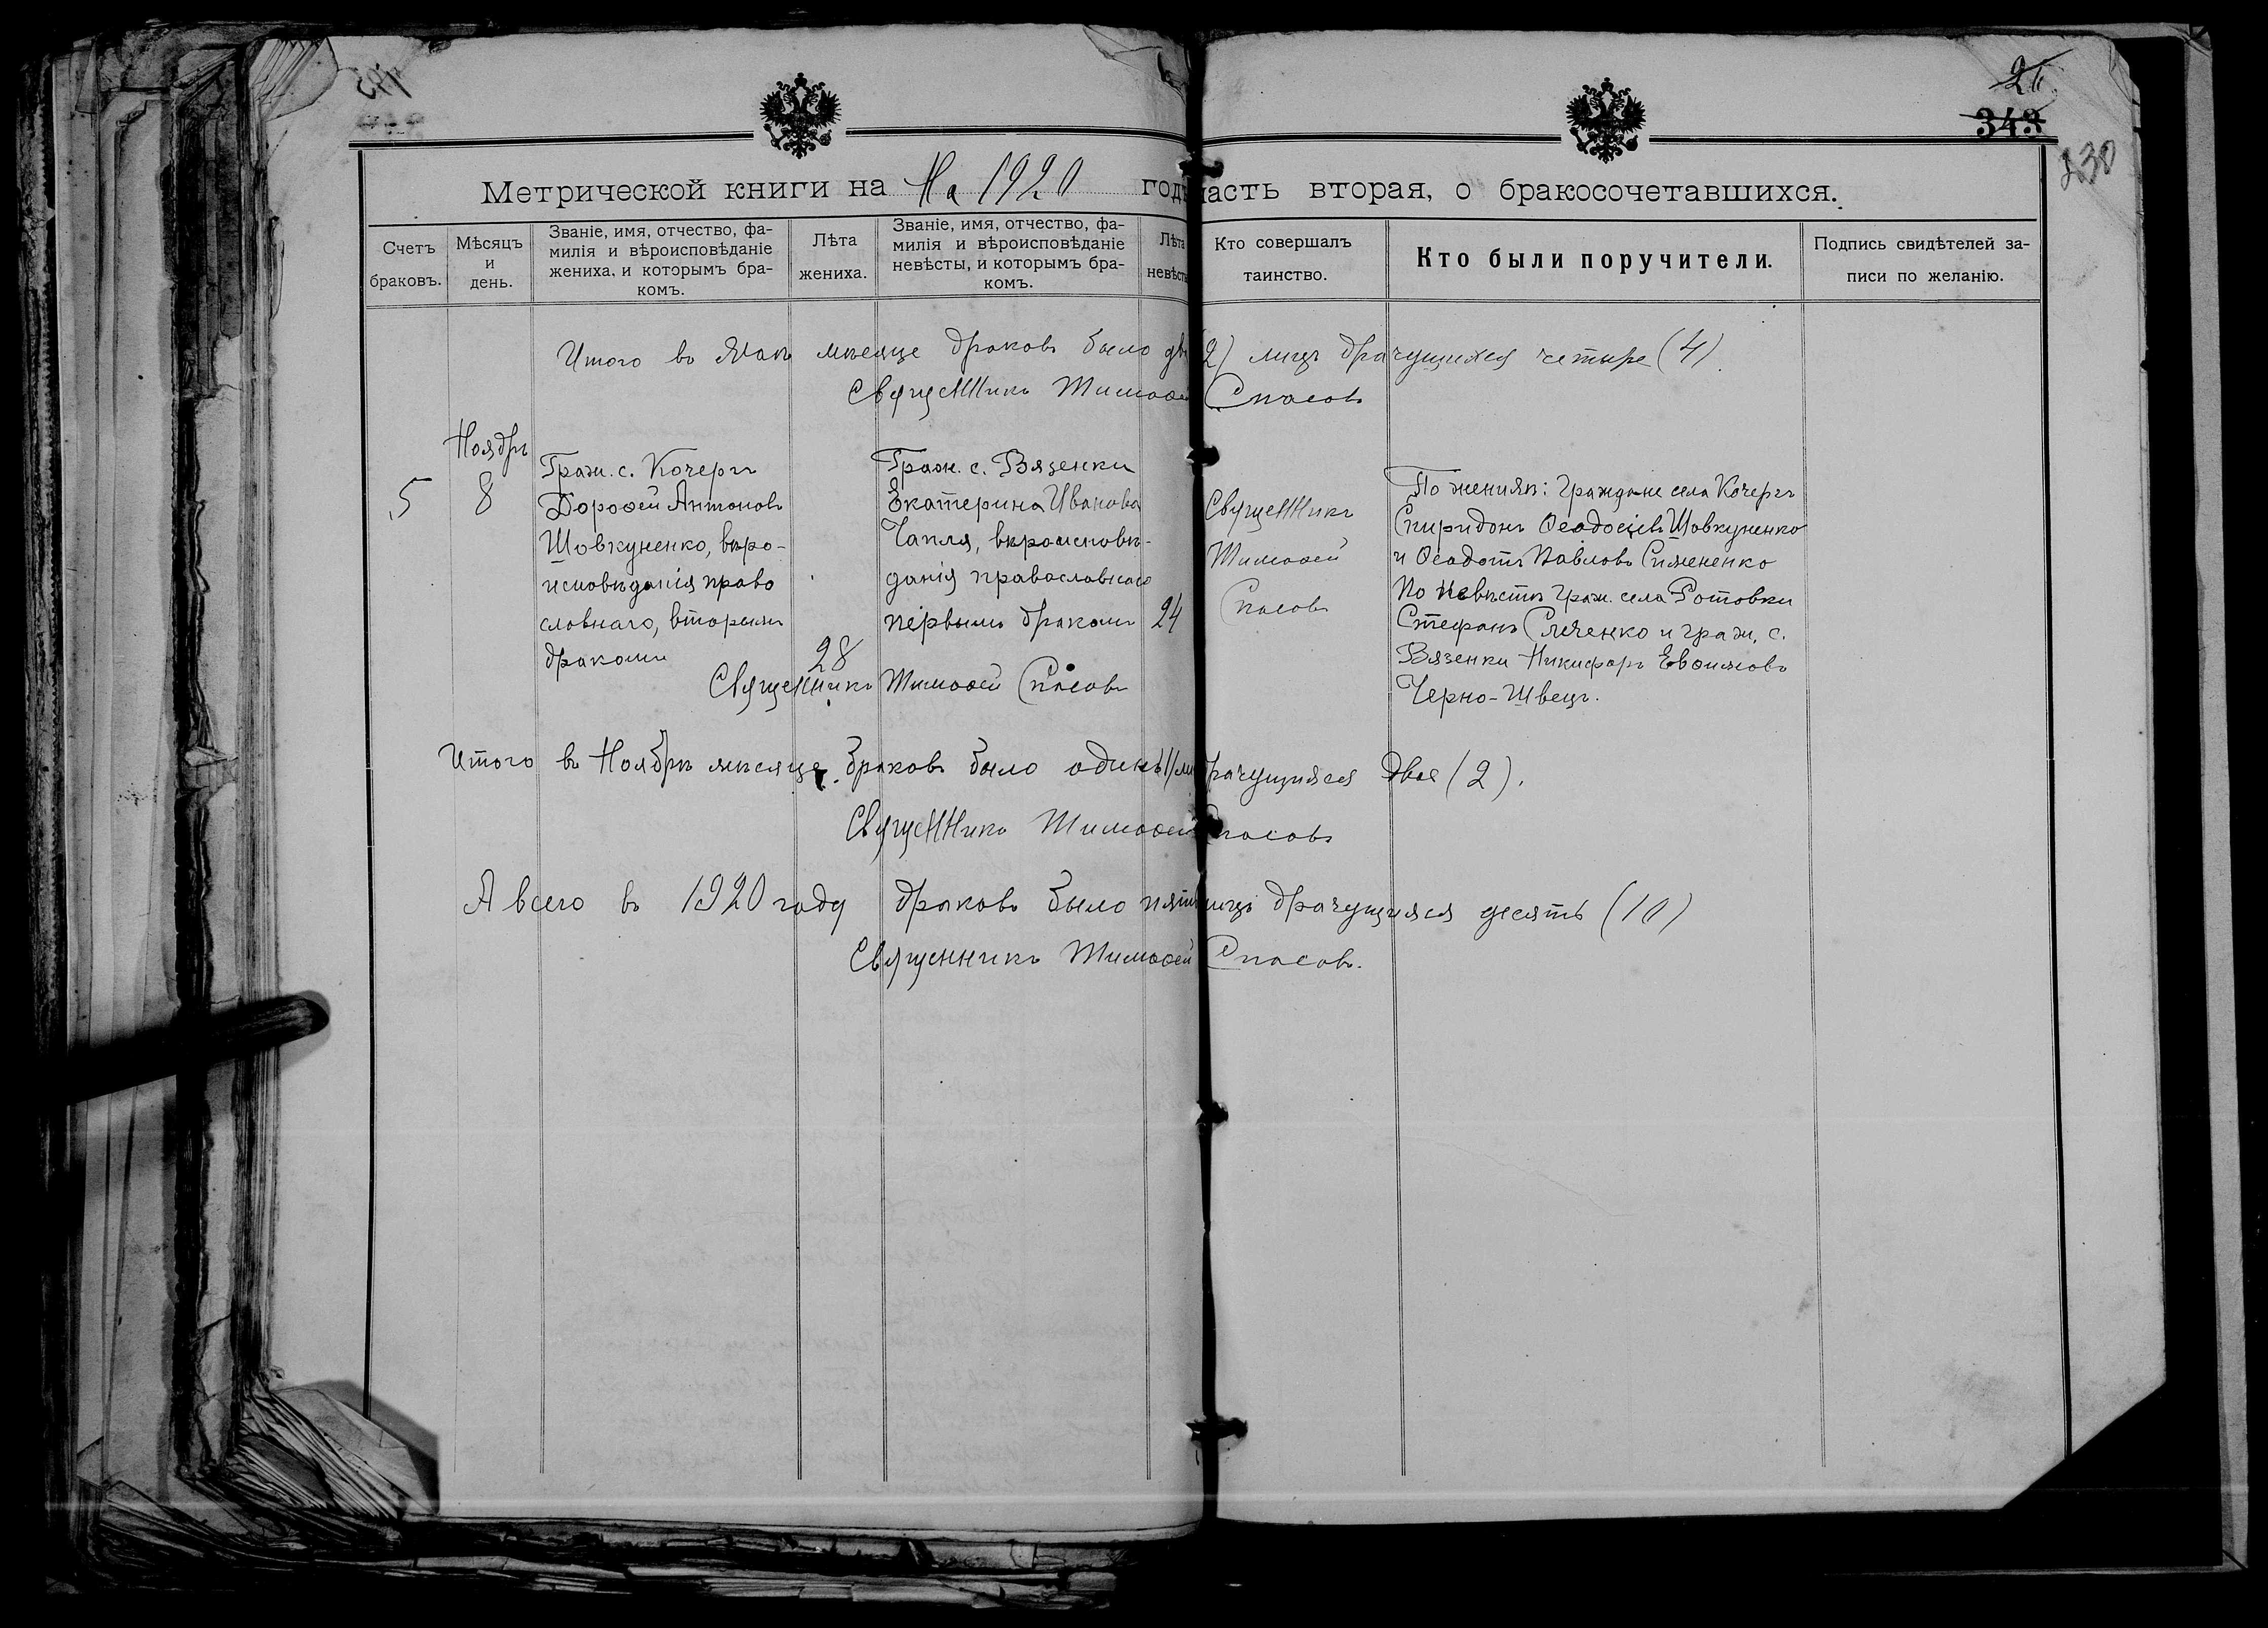 26
343
230
Метрической книги на На 1920 годъ
часть вторая, о бракосочетавшихся.
Счетъ браковъ.
Мѣсяцъ и день.
Званіе, имя, отчество, фа-
милія и вѣроисповѣданіе
жениха, и которымъ бра-
комъ.
Лѣта жениха.
Званіе, имя, отчество, фа-
милія и вѣроисповѣданіе
невѣсты, и которымъ бра-
комъ.
Лѣта невѣсты
Кто совершалъ
таинство.
Кто были поручители.
Подпись свидѣтелей за-
писи по желанію.
Итого въ мѣсяце браковъ было дв 2) лицъ брачущихся четыре (4).
Священникъ Тимоѳей Спасовъ
5
Ноябрь
8
Граж. с. Кочергъ
Дороѳей Антоновъ
Шовкуненко, вѣро-
исповѣданія право
славнаго, вторымъ
бракомъ
28
Граж. с. Вязенки
Екатерина Иванова
Чапля, вѣроисповѣ-
данія православнаго
первымъ бракомъ
24
Священникъ
Тимоѳей
Спасовъ
По женихѣ: Граждане села Кочергъ
Спиридонъ Ѳеодосіевъ Шовкуненко
и Ѳеодотъ Павловъ
По невѣстѣ граж. села Ротовки
Стефанъ и граж. с.
Вязенки Никифоръ Евѳимовъ
Черно-Швецъ.
Священникъ Тимоѳей Спасовъ
Итого въ Ноябрѣ мѣсяце браковъ было одинъ 1/ли брачущихся двое (2).
Священникъ Тимоѳей Спасовъ
А всего въ 1920 году браковъ было пять лицъ брачущихся десять (10)
Священникъ Тимоѳей Спасовъ.